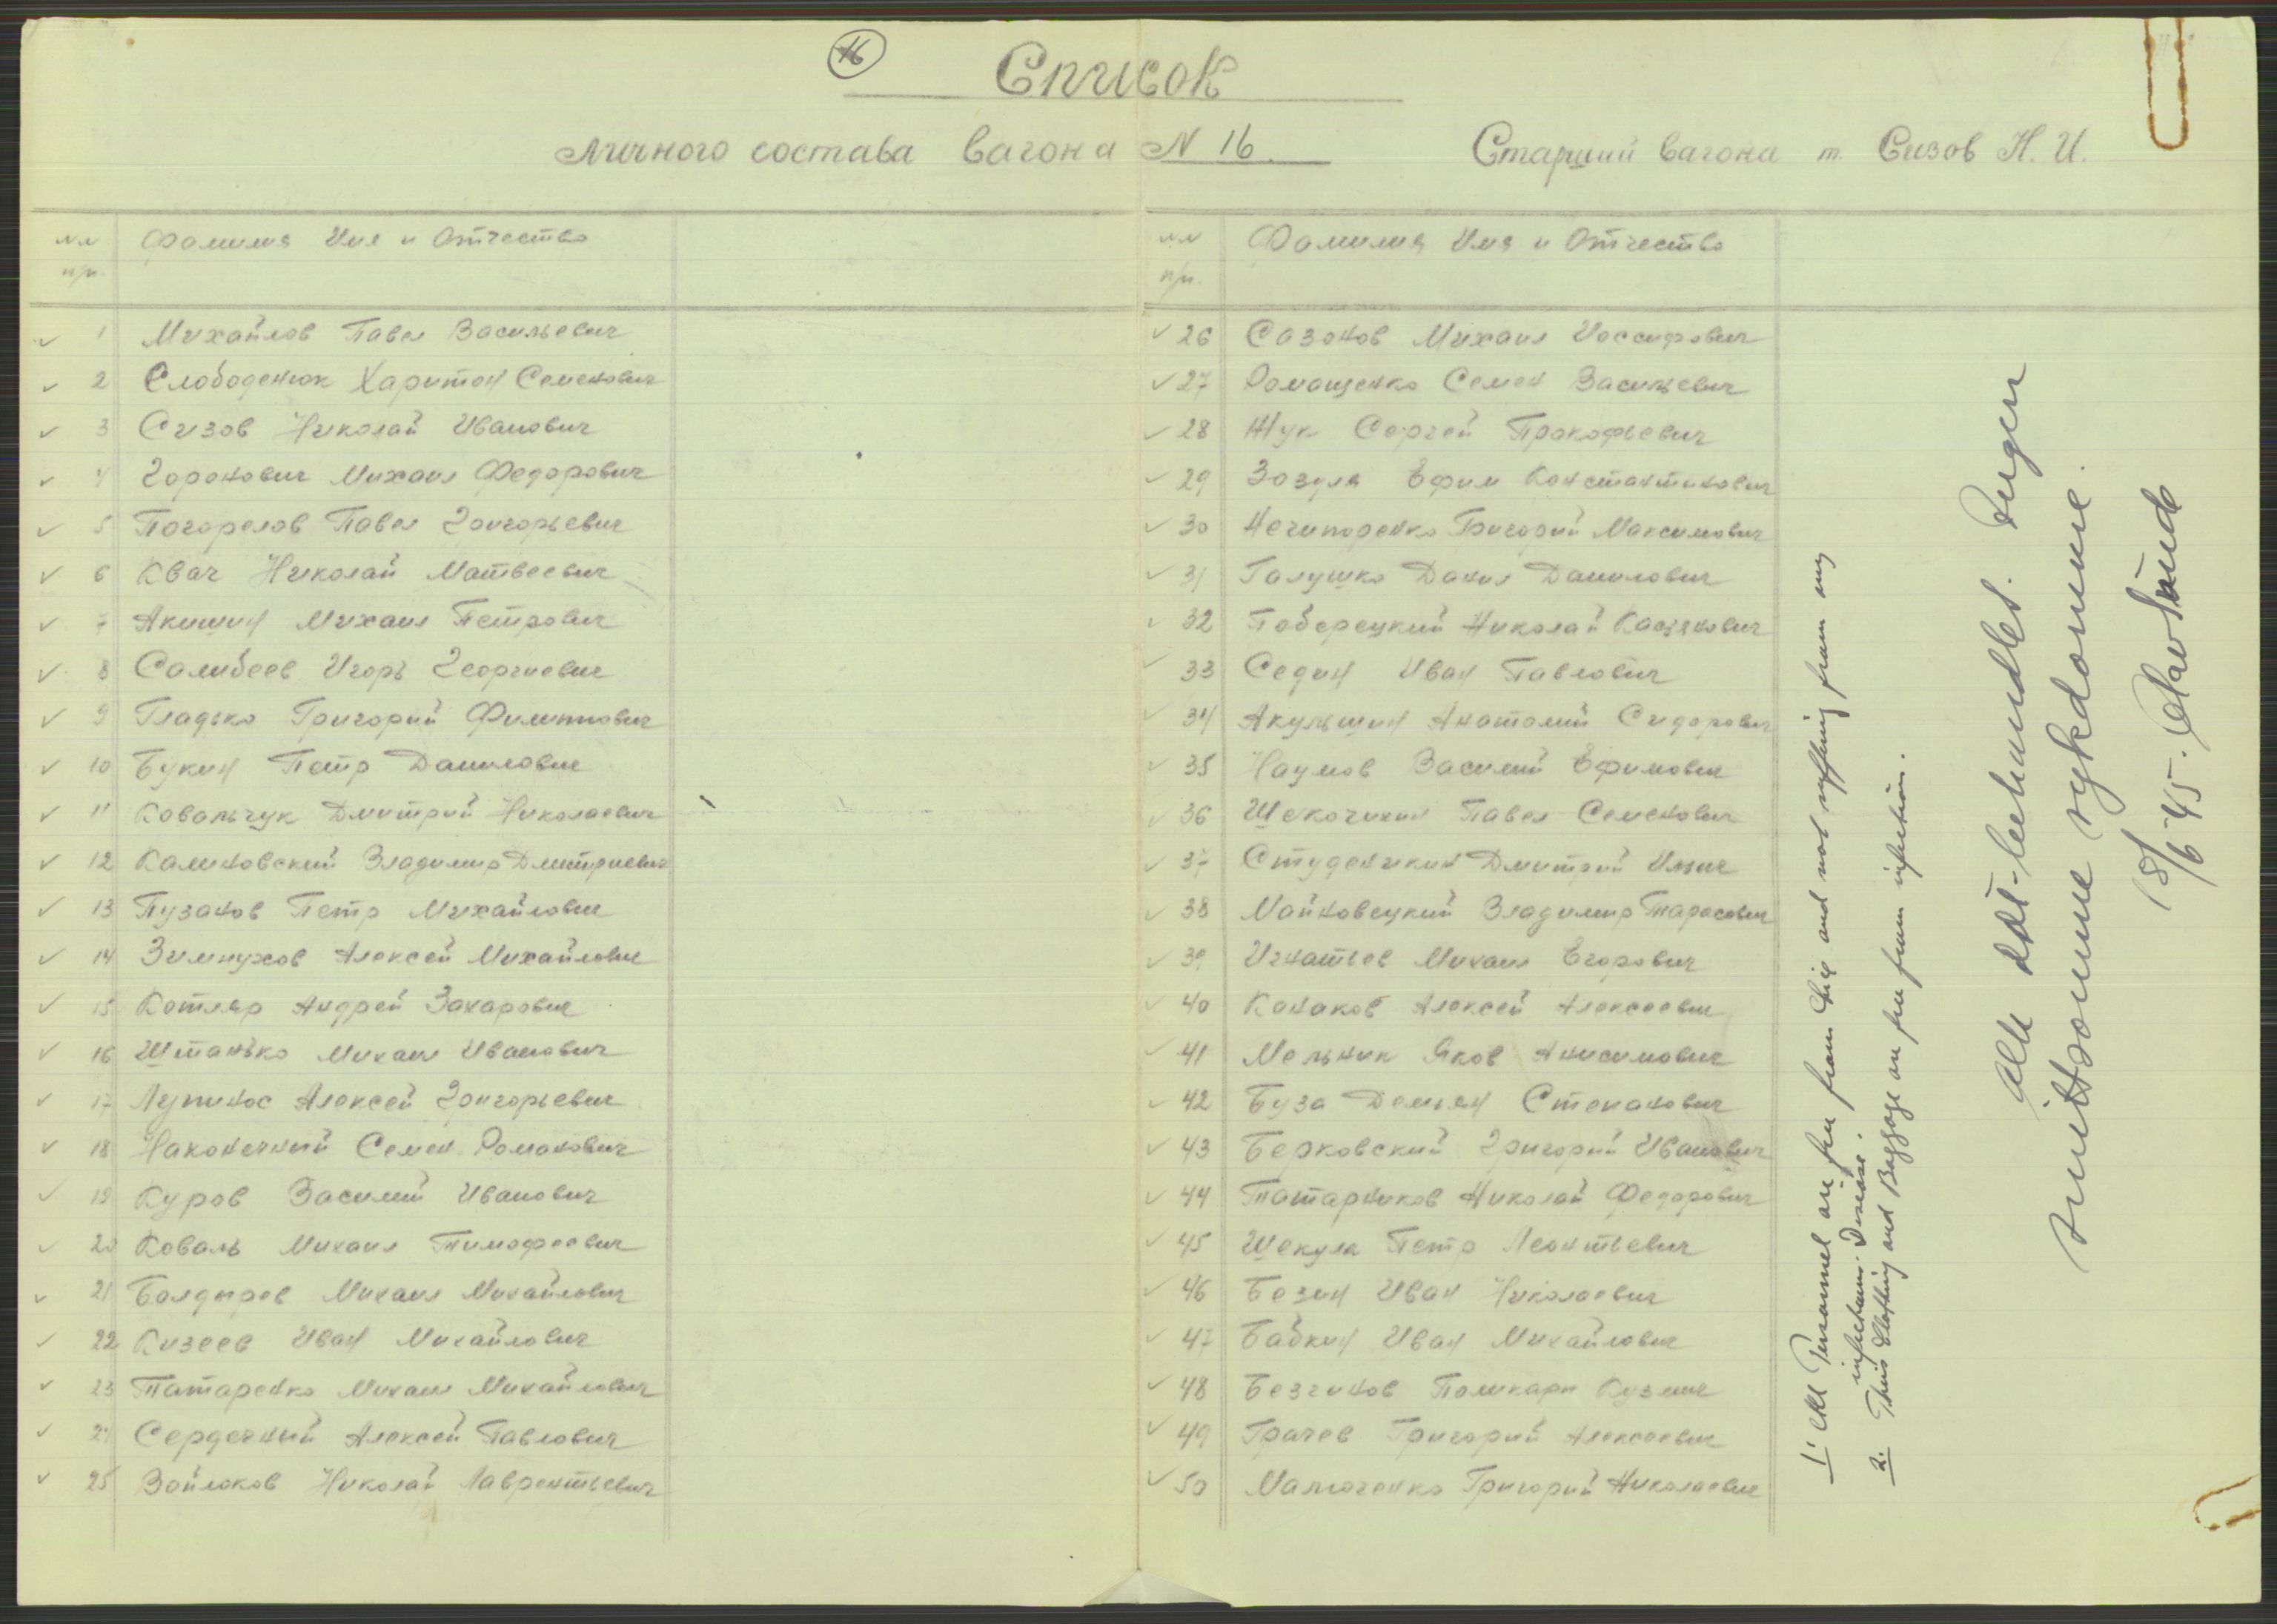 16
Список
личного состава вагона N 16.
Старший вагона т. Сизов Н. И.
NN п/п. Фамилия Имя и Отчество
1 Михайлов Павел Васильевич
2 Слободенюк Харитон Семенович
3 Сизов Николай Иванович
4 Горонович Михаил Федорович
5 Погорелов Павел Григорьевич
6 Квач Николай Матвеевич
7 Акишин Михаил Петрович
8 Салибеев Игорь Георгиевич
9 Гладько Григорий Филиппович
10 Букин Петр Данилович
11 Ковальчук Дмитрий Николаевич
12 Калиновский Владимир Дмитриевич
13 Пузаков Петр Михайлович
14 Зимнухов Алексей Михайлович
15 Котляр Андрей Захарович
16 Штанько Михаил Иванович
17 Лупинос Алексей Григорьевич
18 Наконечный Семен Романович
19 Куров Василий Иванович
20 Коваль Михаил Тимофеевич
21 Болдырев Михаил Михайлович
22 Кизеев Иван Михайлович
23 Татаренко Михаил Михайлович
24 Сердечный Алексей Павлович
25 Войлоков Николай Лаврентьевич
NN п/п. Фамилия Имя и Отчество
26 Сазонов Михаил Иоссифович
27 Ромащенко Семен Васильевич
28 Жук Сергей Прокофьевич
29 Зозуля Ефим Константинович
30 Нечипоренко Григорий Максимович
31 Галушко Данил Данилович
32 Поберецкий Николай Касянович
33 Седин Иван Павлович
34 Акульшин Анатолий Сидорович
35 Наумов Василий Ефимович
36 Щекочихин Павел Семенович
37 Студеникин Дмитрий Ильич
38 Майковецкий Владимир Тарасович
39 Игнатьев Михаил Егорович
40 Канаков Алексей Алексеевич
41 Мельник Яков Анисимович
42 Буза Демьян Степанович
43 Берковский Григорий Иванович
44 Татарников Николай Федорович
45 Шекула Петр Леонтьевич
46 Безин Иван Николаевич
47 Бабкин Иван Михайлович
48 Безгинов Поликарп Кузмич
49 Грачев Григорий Алексеевич
50 Малюченко Григорий Николаевич
1. All Personnel are free from lice and not suffering from any
infectious Disease.
2. Their Clothing and Baggage are free from infection.
Alle ddt-behandlet. Ingen
smittsomme sykdomme.
18/6-45.